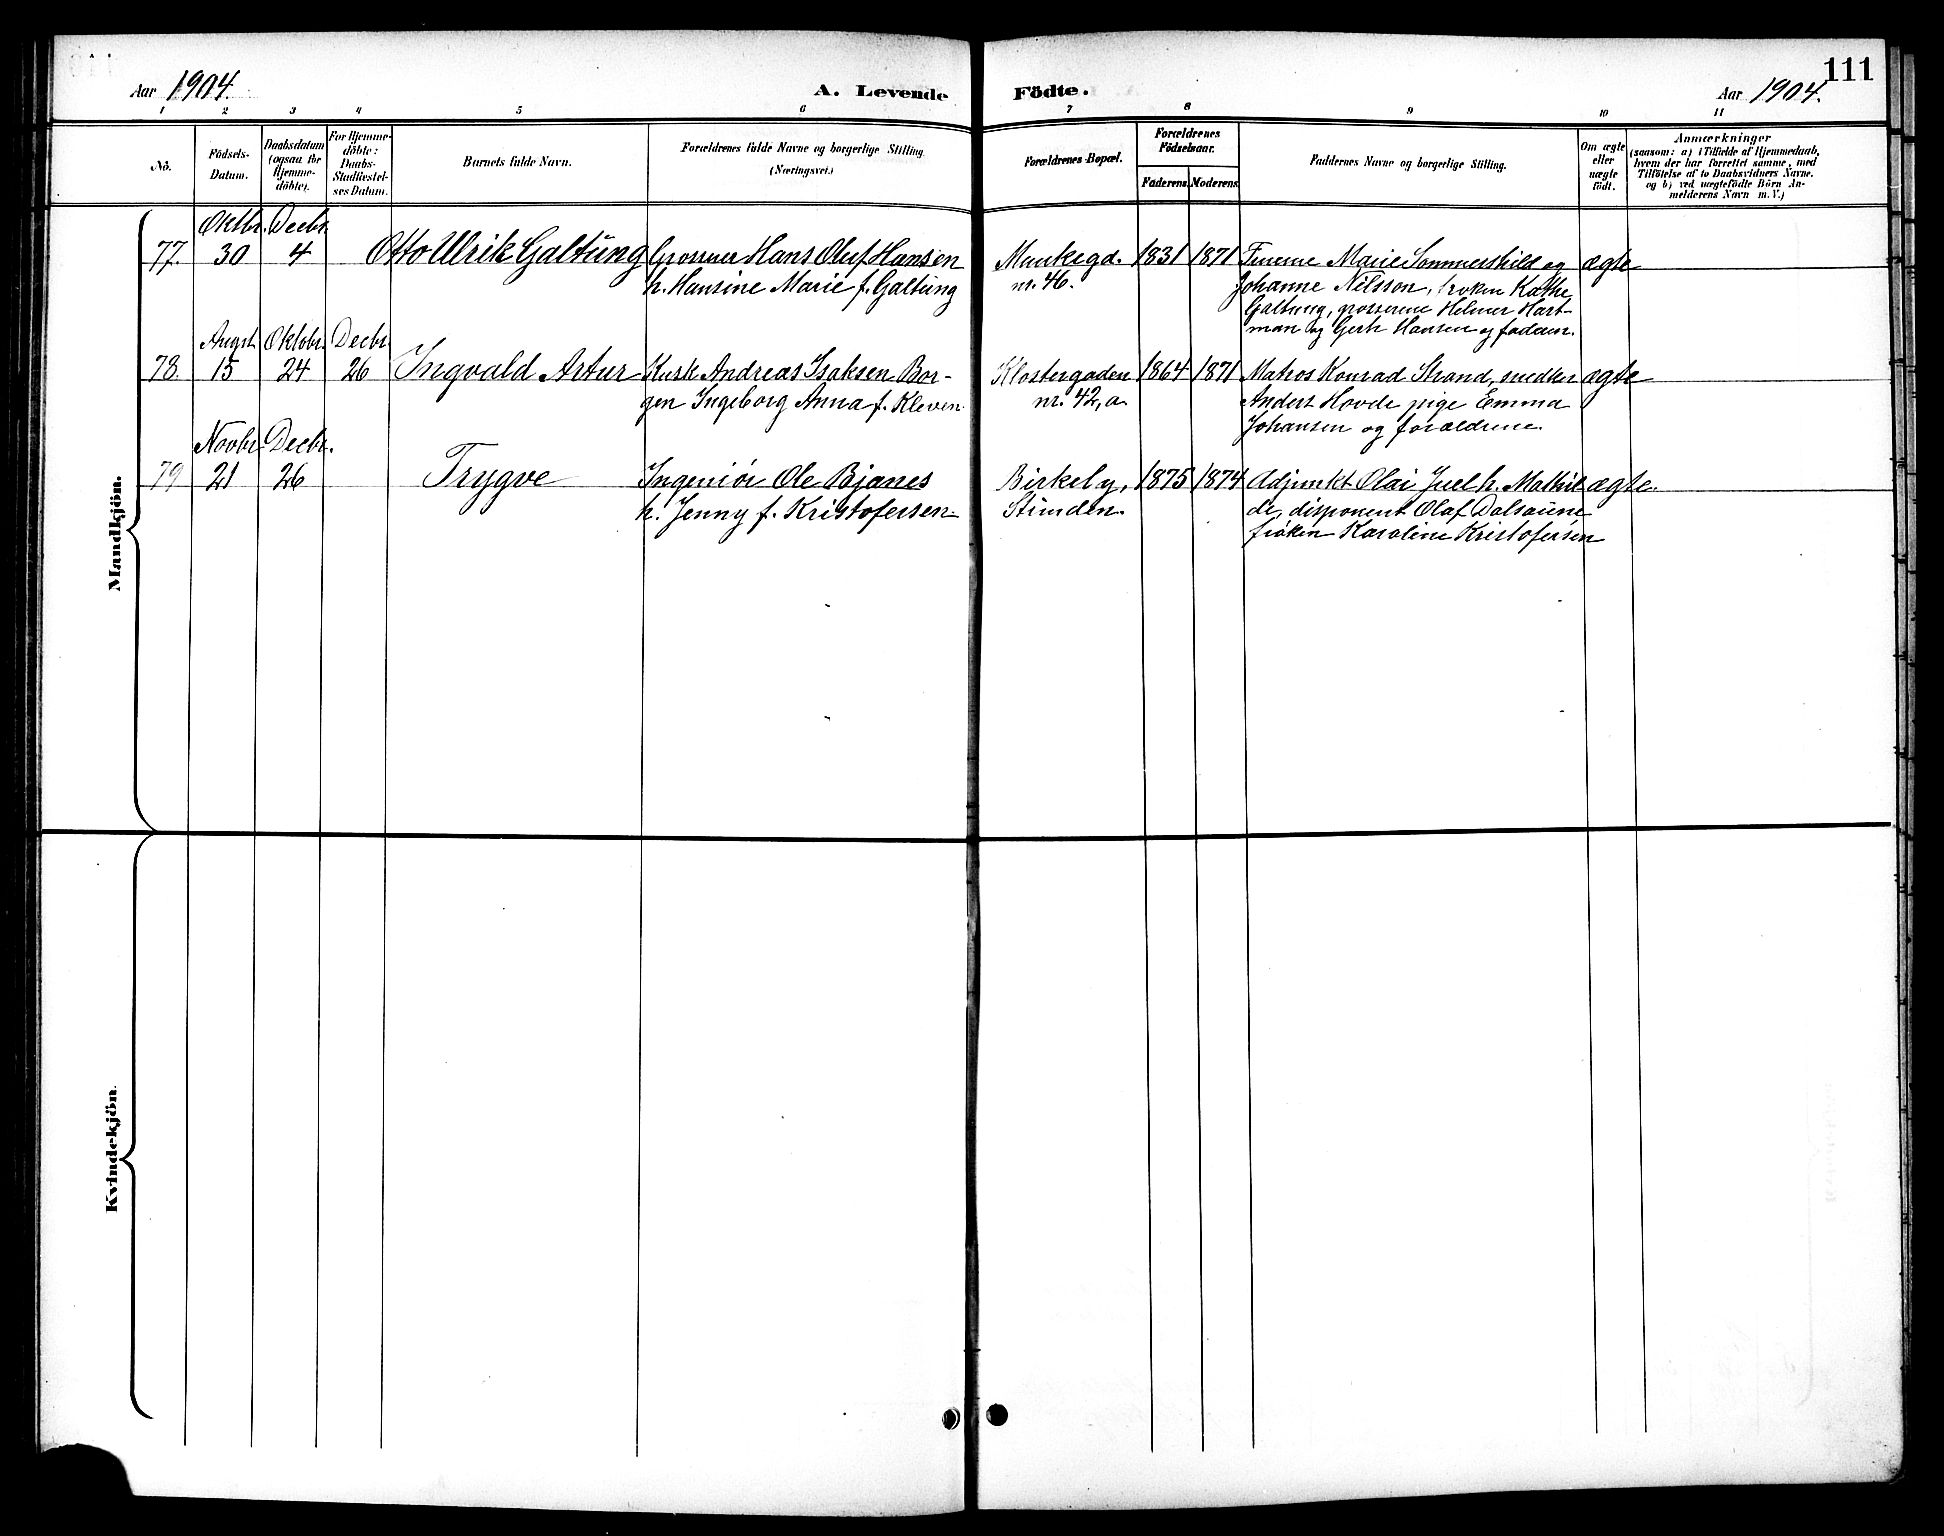 Aar 1904.
A. Levende Födte.
111
Aar 1904.
1 2 3 4 5 6 7 8 9 10 11
No.
Födsels-
Datum.
Daabsdatum
(ogsaa for
Hjemme-
döbte).
For Hjemme-
döbte:
Daabs-
Stadfæstel-
ses Datum.
Barnets fulde Navn.
Forældrenes fulde Navne og borgerlige Stilling
(Næringsvei.)
Forældrenes Bopæl.
Forældrenes
Födselsaar.
Faderens. Moderens.
Faddernes Navne og borgerlige Stilling.
Om ægte
eller
uægte
födt.
Anmærkninger
(saasom: a) i Tilfælde af Hjemmedaab,
hvem der har forrettet samme, med
Tilföielse af to Daabsvidners Navne.
og b) ved uægtefödte Börn An-
melderens Navn m. V.)
Mandkjön.
Oktbr. Decbr.
77. 30 4 Otto Ulrik Galtung Grosserer Hans Oluf Hansen Munkegd. 1831 1871 Fruerne Marie Sommershild og ægte
h. Hansine Marie f. Galtung nr. 46. Johanne Nilsson, frøken Kathe
Galtung, grossererne Helmer Hart-
man og Gerh Hansen og faderen.
Augst Oktobr. Decbr.
78. 15 24 26 Ingvald Artur Kusk Andreas Isaksen Bor- Klostergaden 1864 1871 Matros Konrad Strand, snedker ægte
gen Ingeborg Anna f. Kleven. nr. 42, a. Anders Hovde pige Emma
Johansen og forældrene.
Novbr. Decbr.
79 21 26 Trygve Ingeniør Ole Bjanes Birkely, 1875 1874 Adjunkt Olai Juel h. Mathil- ægte.
h. Jenny f. Kristofersen. Stinden. de, disponent Olaf Dalsaune
frøken Karoline Kristofersen
Kvindekjön.